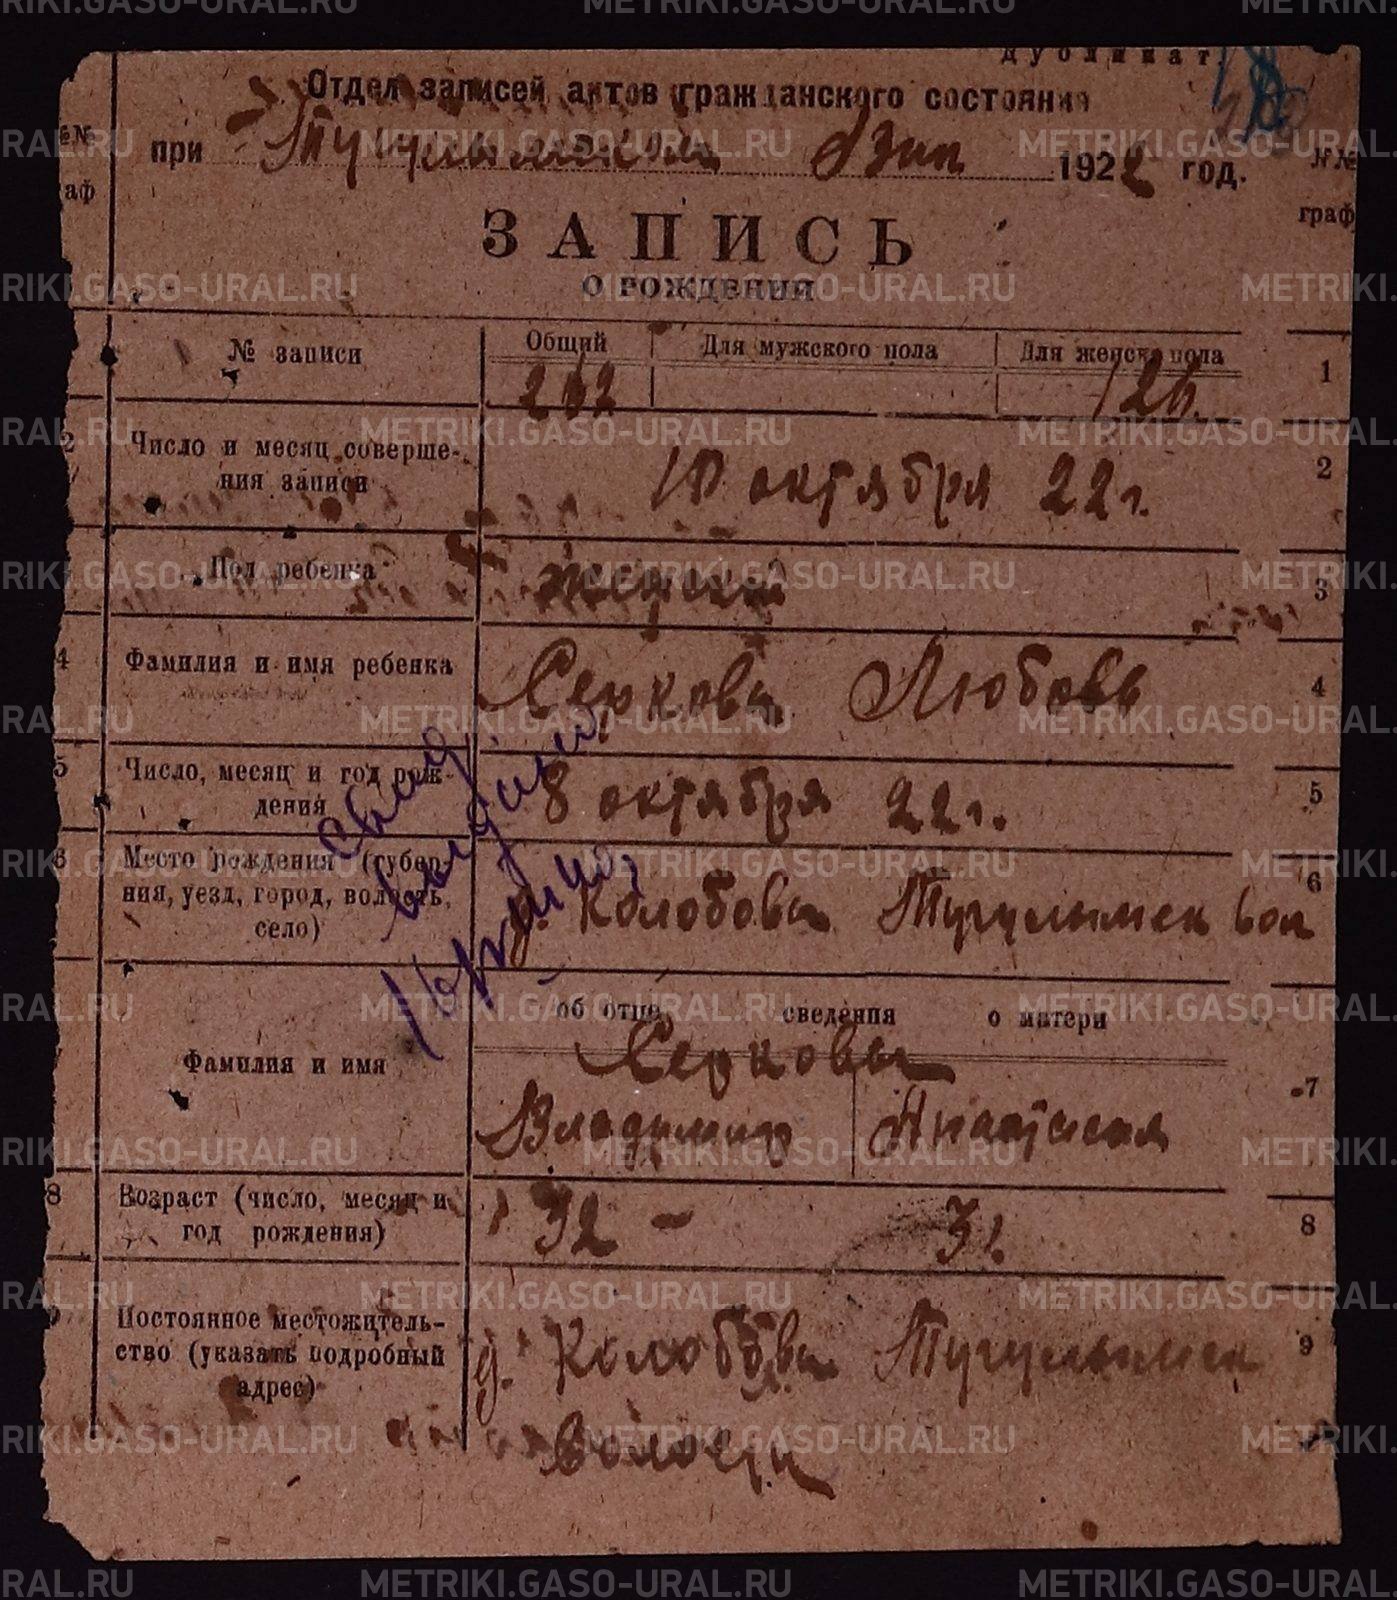 Дубликат.
Отдел записей актов гражданского состояния
при Тугулымском 1922 год.
№№ граф
№№ граф
ЗАПИСЬ
О РОЖДЕНИИ
№ записи
Общий Для мужского пола Для женск. пола
262 126.
1
2 Число и месяц соверше-
ния записи
10 октября 22 г.
2
Пол ребенка
женский
3
4 Фамилия и имя ребенка
Серкова Любовь
4
5 Число, месяц и год рож-
дения
8 октября 22 г.
5
6 Место рождения (губер-
ния, уезд, город, волость,
село)
д. Колобова Тугулымск вол
6
об отце сведения о матери
Фамилия и имя
Серковы
Владимир Анастасия
7
8 Возраст (число, месяц и
год рождения)
32 - 31.
8
9 Постоянное местожитель-
ство (указать подробный
адрес)
д. Колобова Тугулымск
волости
9
METRIKI.GASO-URAL.RU